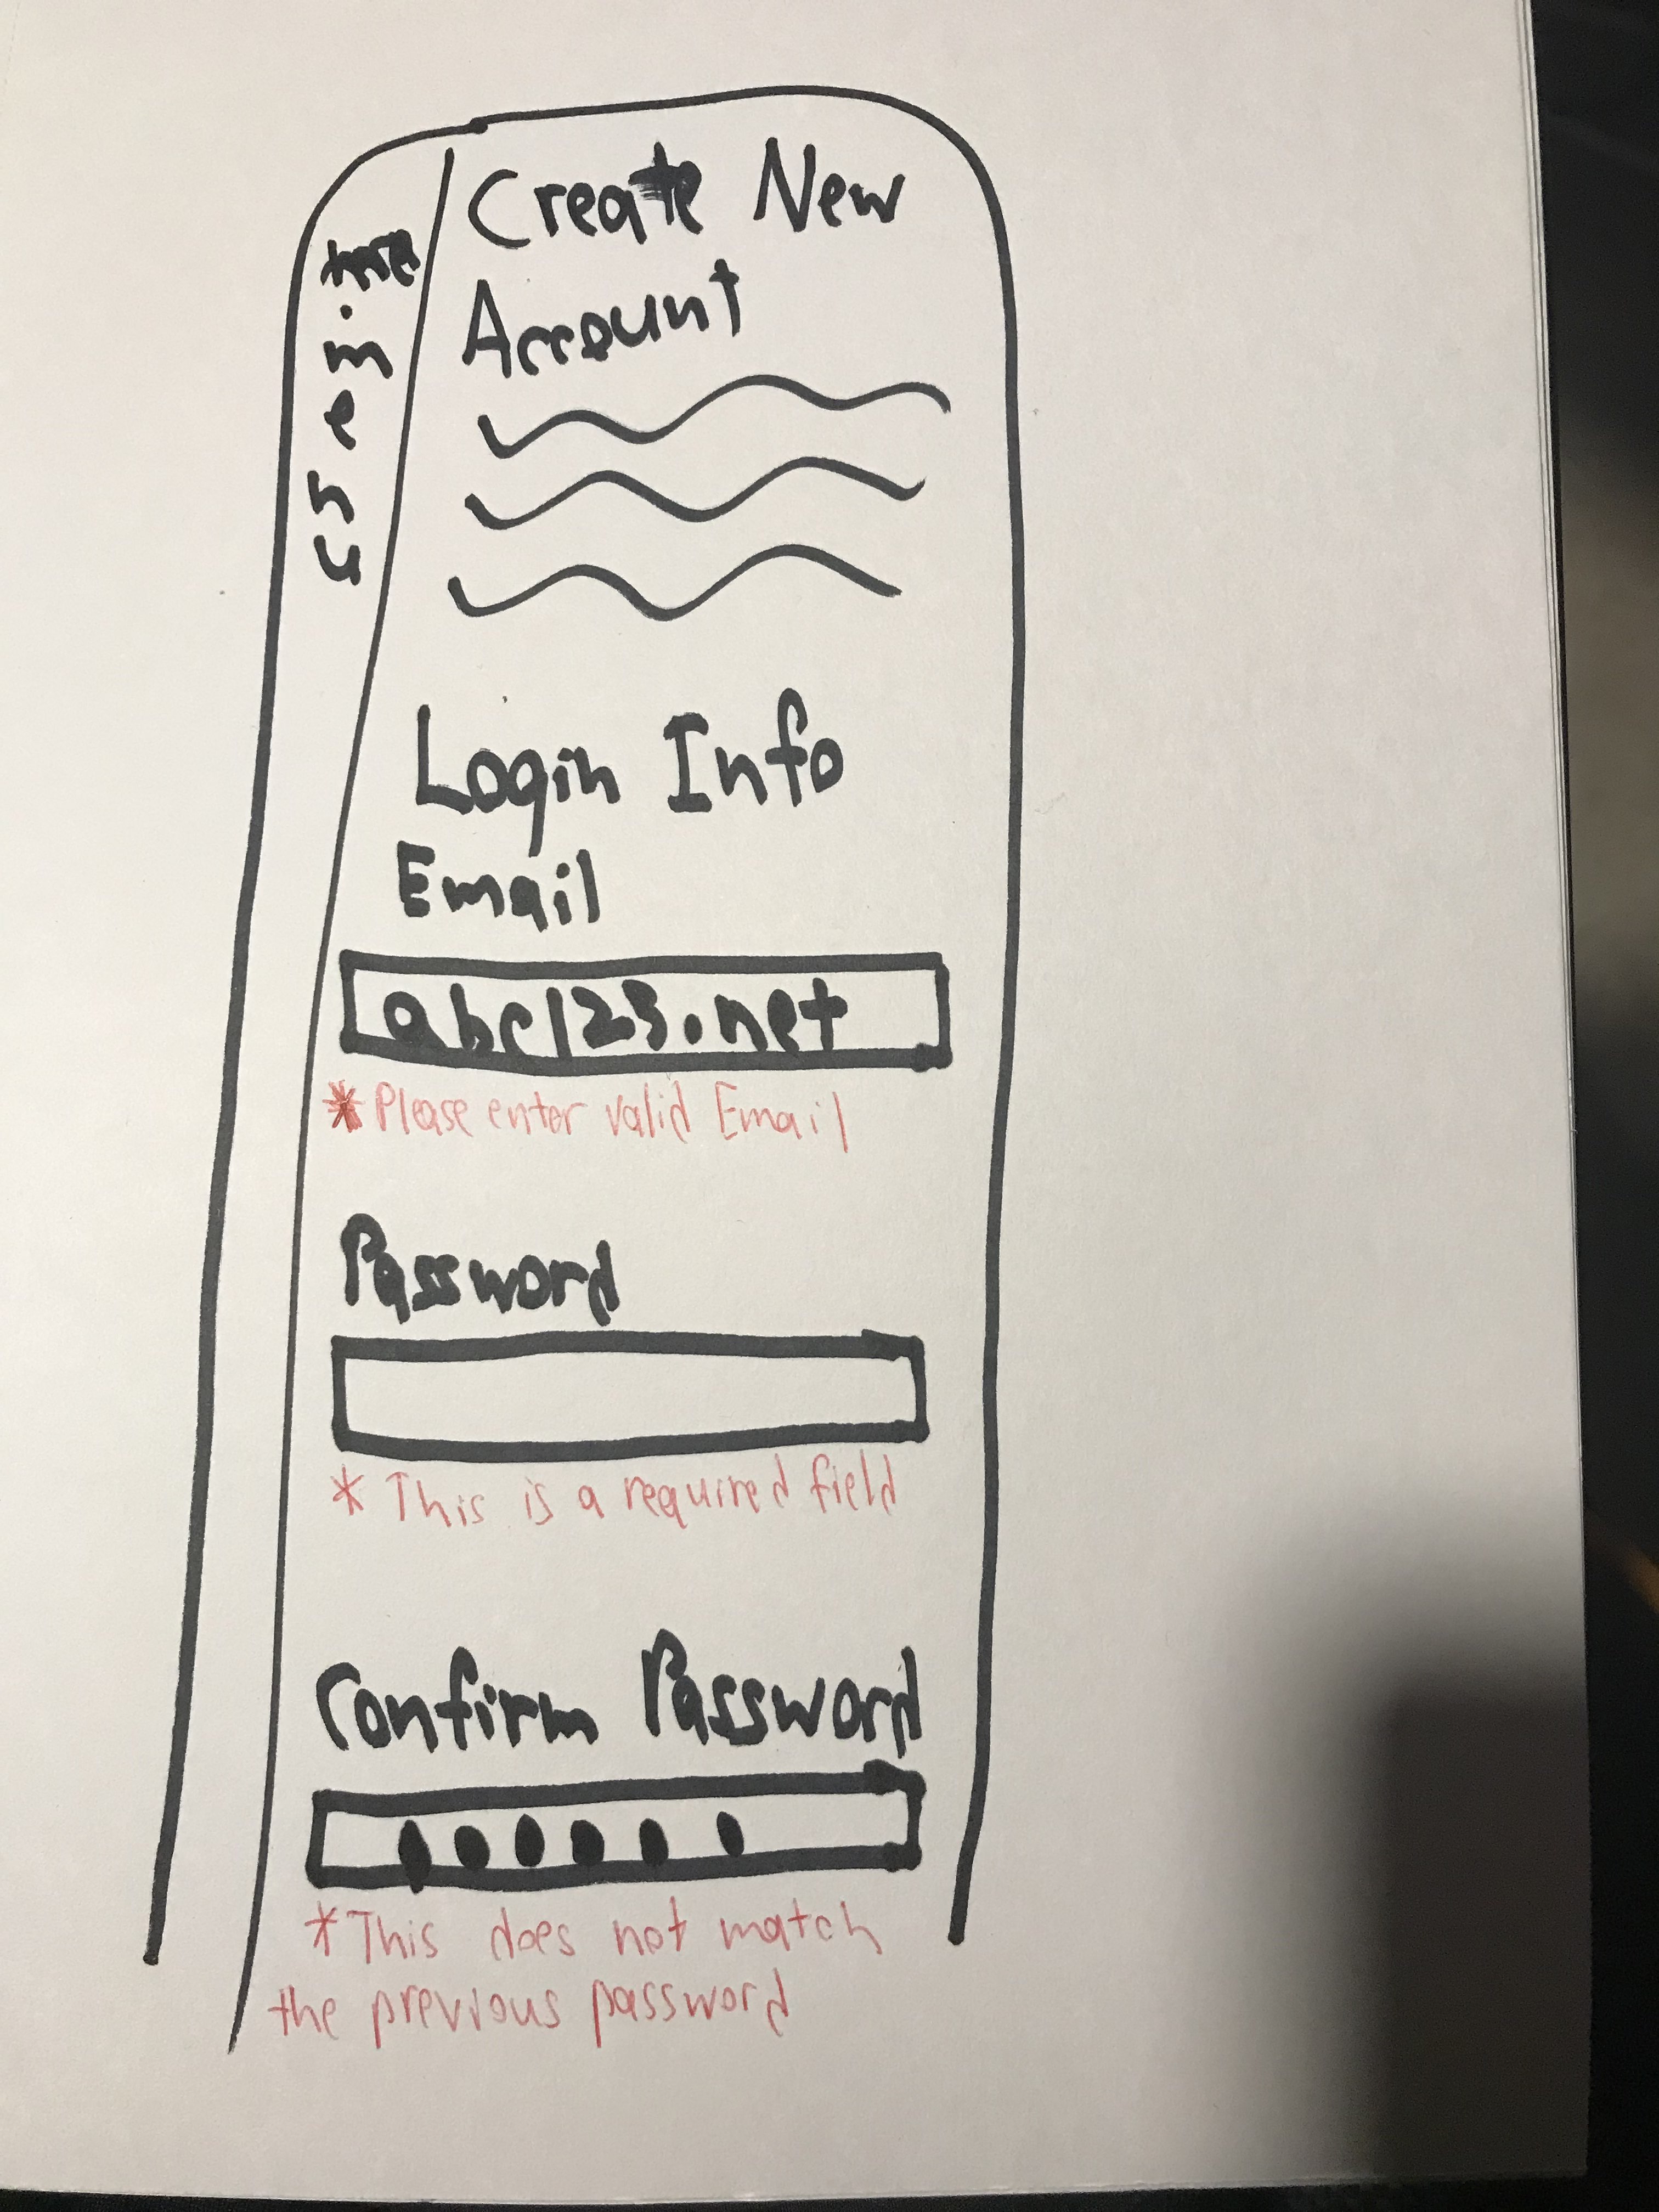 Create New
Account
Login Info
Email
abc123.net
* Please enter valid Email
Password
* This is a required field
Confirm Password
* This does not match
the previous password